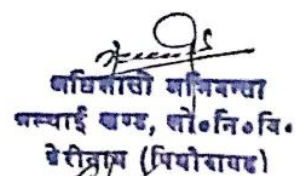 अधिशासी अभियन्ता
अस्थाई खण्ड, लो०नि०वि०
बेरीनाग (पिथौरागढ़)